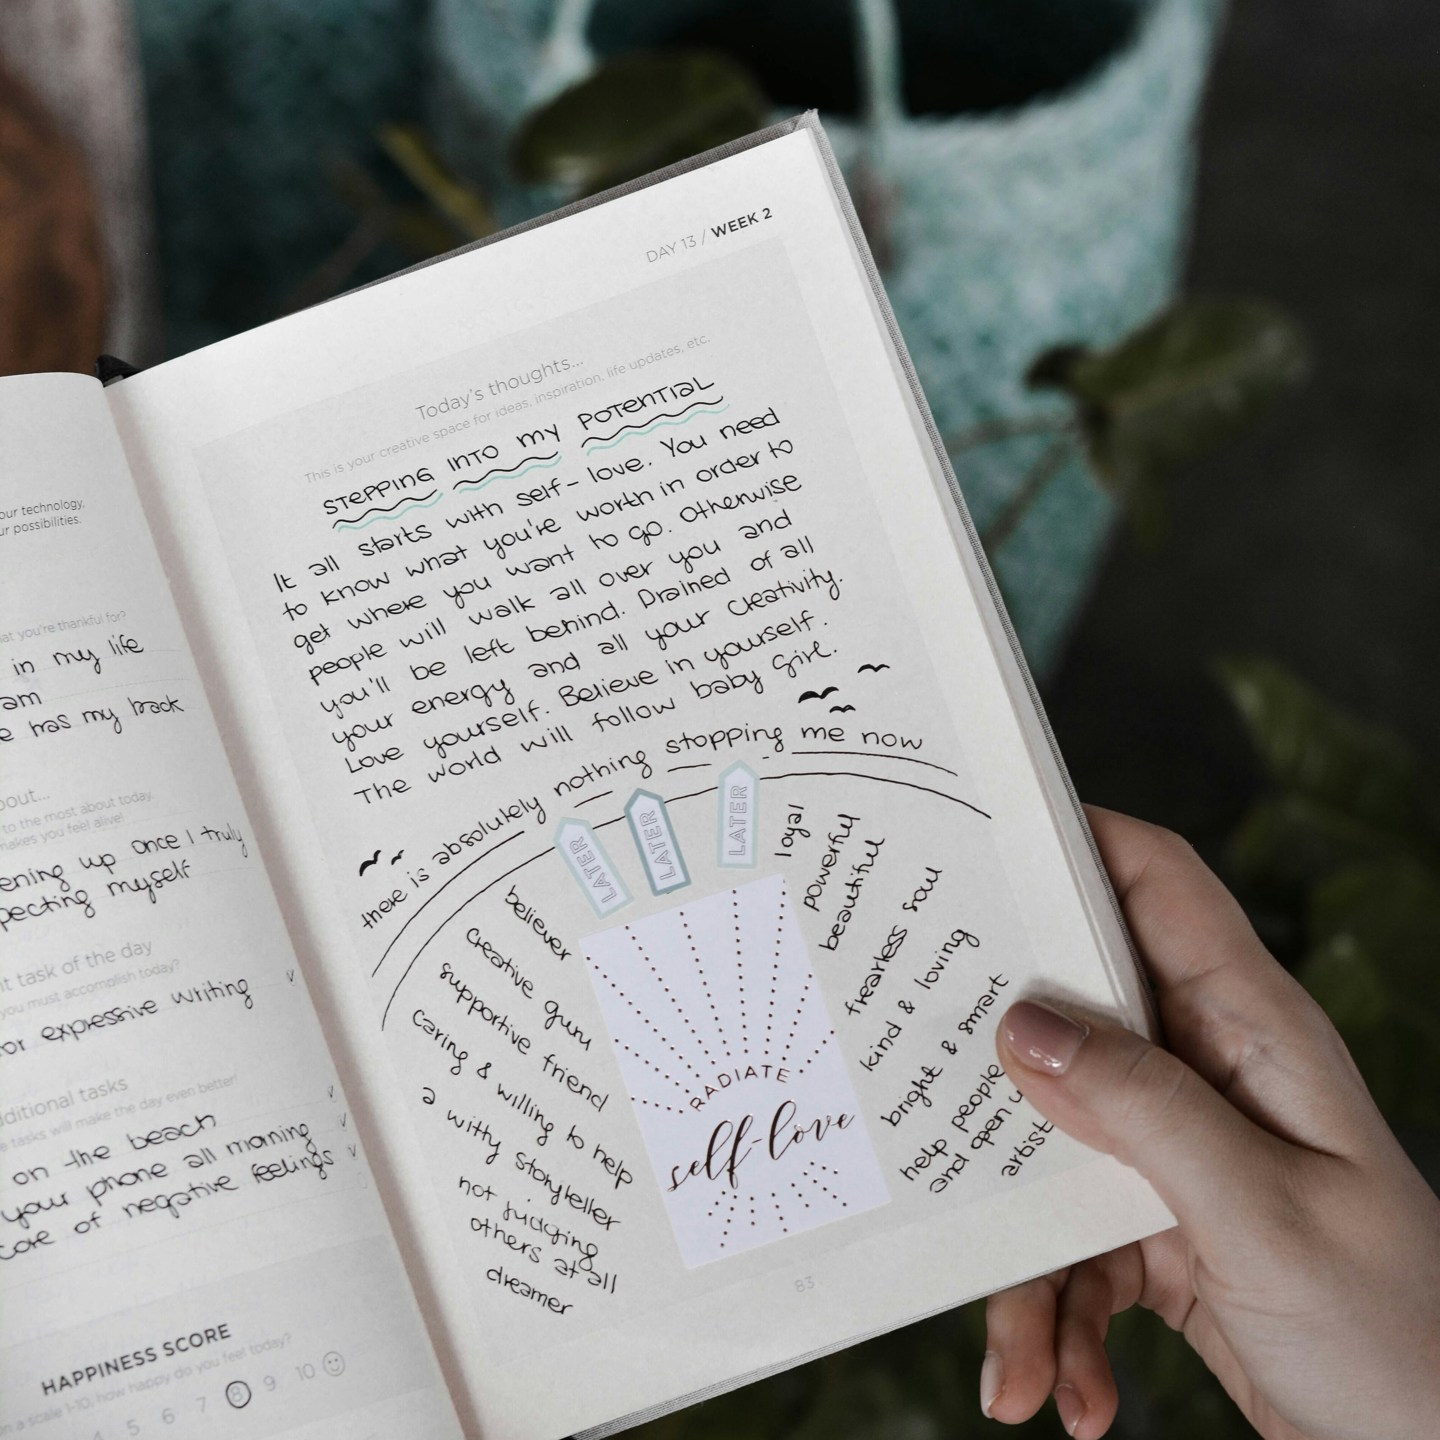 our technology,
ur possibilities.
at you're thankful for?
in my life
am
e has my back
bout...
to the most about today,
makes you feel alive!
ening up once I truly
pecting myself
nt task of the day
you must accomplish today?
or expressive writing
dditional tasks
e tasks will make the day even better!
on the beach
your phone all morning
core of negative feelings
HAPPINESS SCORE
on a scale 1-10, how happy do you feel today?
4 5 6 7 8 9 10
DAY 13 / WEEK 2
Today's thoughts...
This is your creative space for ideas, inspiration, life updates, etc.
STEPPING INTO MY POTENTIAL
It all starts with self-love. You need
to know what you're worth in order to
get where you want to go. Otherwise
people will walk all over you and
you'll be left behind. Drained of all
your energy and all your creativity.
Love yourself. Believe in yourself.
The world will follow baby girl.
there is absolutely nothing stopping me now
LATER
LATER
LATER
believer
creative guru
supportive friend
caring & willing to help
a witty storyteller
not judging
others at all
dreamer
RADIATE
self-love
loyal
powerful
beautiful
fearless soul
kind & loving
bright & smart
help people
and open u
artist
83